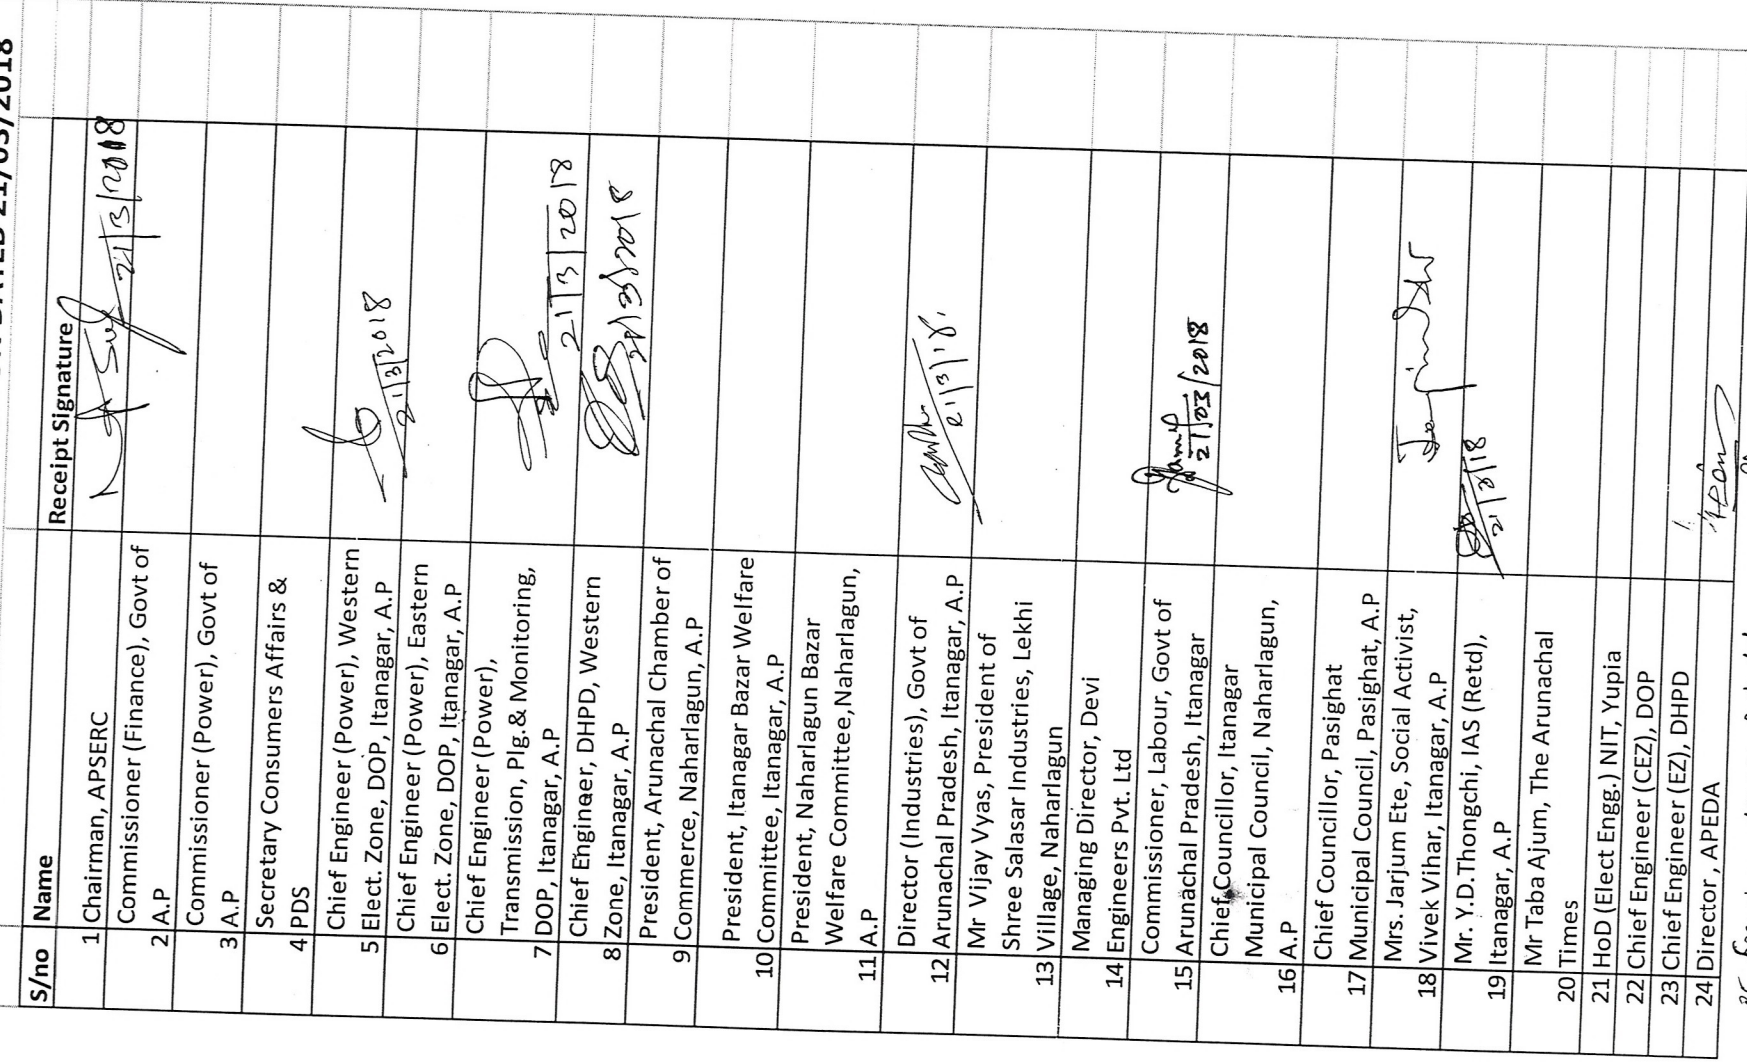 DATED 21/03/2018
S/no Name Receipt Signature
1 Chairman, APSERC
21/3/2018
Commissioner (Finance), Govt of
2 A.P
Commissioner (Power), Govt of
3 A.P
Secretary Consumers Affairs &
4 PDS
Chief Engineer (Power), Western
5 Elect. Zone, DOP, Itanagar, A.P
21/3/2018
Chief Engineer (Power), Eastern
6 Elect. Zone, DOP, Itanagar, A.P
Chief Engineer (Power),
Transmission, Plg.& Monitoring,
7 DOP, Itanagar, A.P
21/3/2018
Chief Engineer, DHPD, Western
8 Zone, Itanagar, A.P
21/3/2018
President, Arunachal Chamber of
9 Commerce, Naharlagun, A.P
President, Itanagar Bazar Welfare
10 Committee, Itanagar, A.P
President, Naharlagun Bazar
Welfare Committee,Naharlagun,
11 A.P
Director (Industries), Govt of
12 Arunachal Pradesh, Itanagar, A.P
21/3/18.
Mr Vijay Vyas, President of
Shree Salasar Industries, Lekhi
13 Village, Naharlagun
Managing Director, Devi
14 Engineers Pvt. Ltd
Commissioner, Labour, Govt of
15 Arunachal Pradesh, Itanagar
21/03/2018
Chief Councillor, Itanagar
Municipal Council, Naharlagun,
16 A.P
Chief Councillor, Pasighat
17 Municipal Council, Pasighat, A.P
Mrs. Jarjum Ete, Social Activist,
18 Vivek Vihar, Itanagar, A.P
Mr. Y.D.Thongchi, IAS (Retd),
19 Itanagar, A.P
21/3/18
Mr Taba Ajum, The Arunachal
20 Times
21 HoD (Elect Engg.) NIT, Yupia
22 Chief Engineer (CEZ), DOP
23 Chief Engineer (EZ), DHPD
24 Director, APEDA